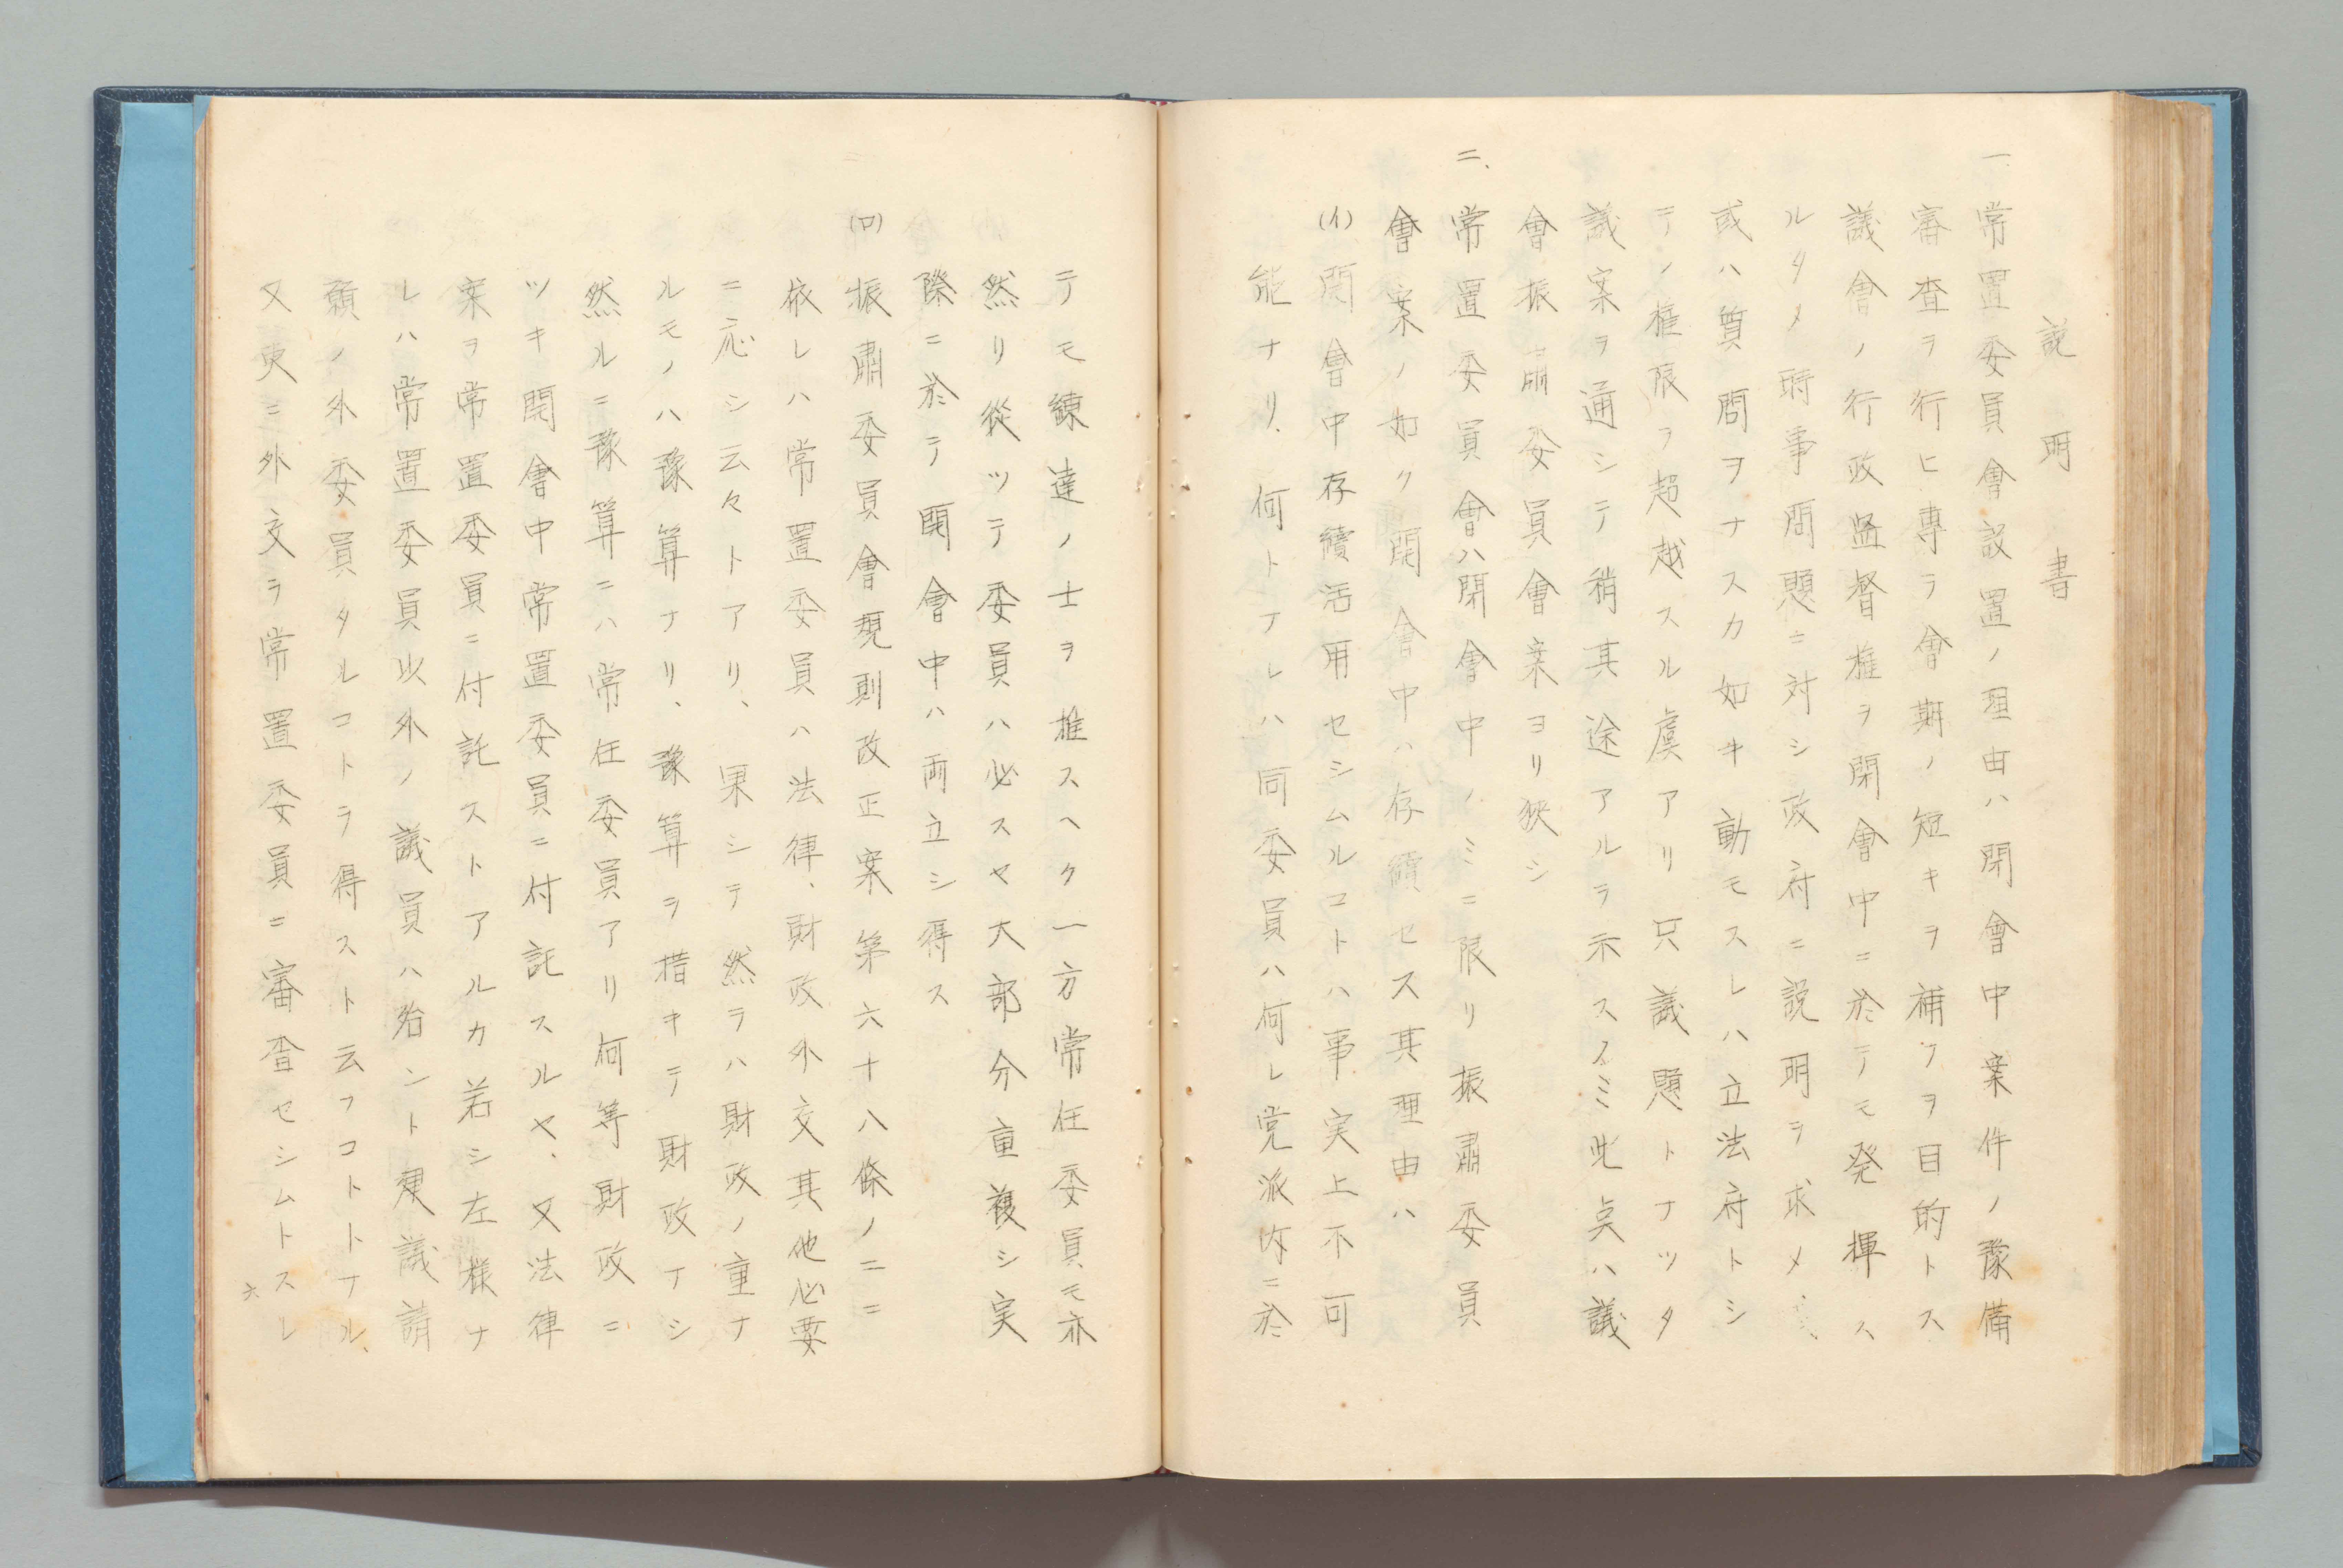 説明書
一、常置委員會設置ノ理由ハ閉會中案件ノ豫備
審査ヲ行ヒ專ラ會期ノ短キヲ補フヲ目的トス
議會ノ行政監督権ヲ閉會中ニ於テモ発揮ス
ルタメ時事問題ニ対シ政府ニ説明ヲ求メ、
或ハ質問ヲナスカ如キ動モスレハ立法府トシ
テノ権限ヲ超越スル虞アリ只議題トナツタ
議案ヲ通シテ稍其途アルヲ示スノミ此点ハ議
會振肅委員會案ヨリ狭シ
二、常置委員會ハ閉會中ノミニ限リ振肅委員
會案ノ如ク開會中ハ存續セス其理由ハ
(イ)開會中存續活用セシムルコトハ事実上不可
能ナリ、何トナレハ同委員ハ何レ党派内ニ於
テモ練達ノ士ヲ推スヘク一方常任委員モ亦
然リ從ツテ委員ハ必スヤ大部分重複シ実
際ニ於テ開會中ハ両立シ得ス
(ロ)振肅委員會規則改正案第六十八條ノ二ニ
依レハ常置委員ハ法律、財政外交其他必要
ニ応シ云々トアリ、果シテ然ラハ財政ノ重ナ
ルモノハ豫算ナリ、豫算ヲ措キテ財政ナシ
然ルニ豫算ニハ常任委員アリ何等財政ニ
ツキ開會中常置委員ニ付託スルヤ、又法律
案ヲ常置委員ニ付託ストアルカ若シ左様ナ
レハ常置委員以外ノ議員ハ殆ント建議請
願ノ外委員タルコトヲ得スト云フコトトナル、
又更ニ外交ヲ常置委員ニ審査セシムトスレ
六